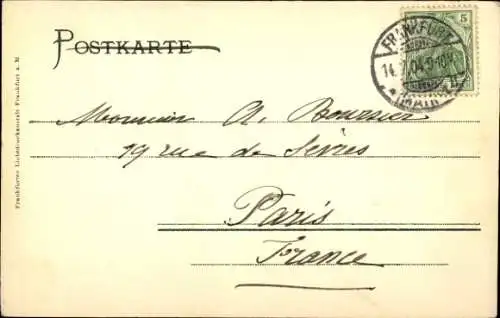 POSTKARTE
5
FRANKFURT
(MAIN)
Frankfurter Lichtdruckanstalt Frankfurt a. M
Monsieur A. Boursier
19 rue de Sèvres
Paris
France